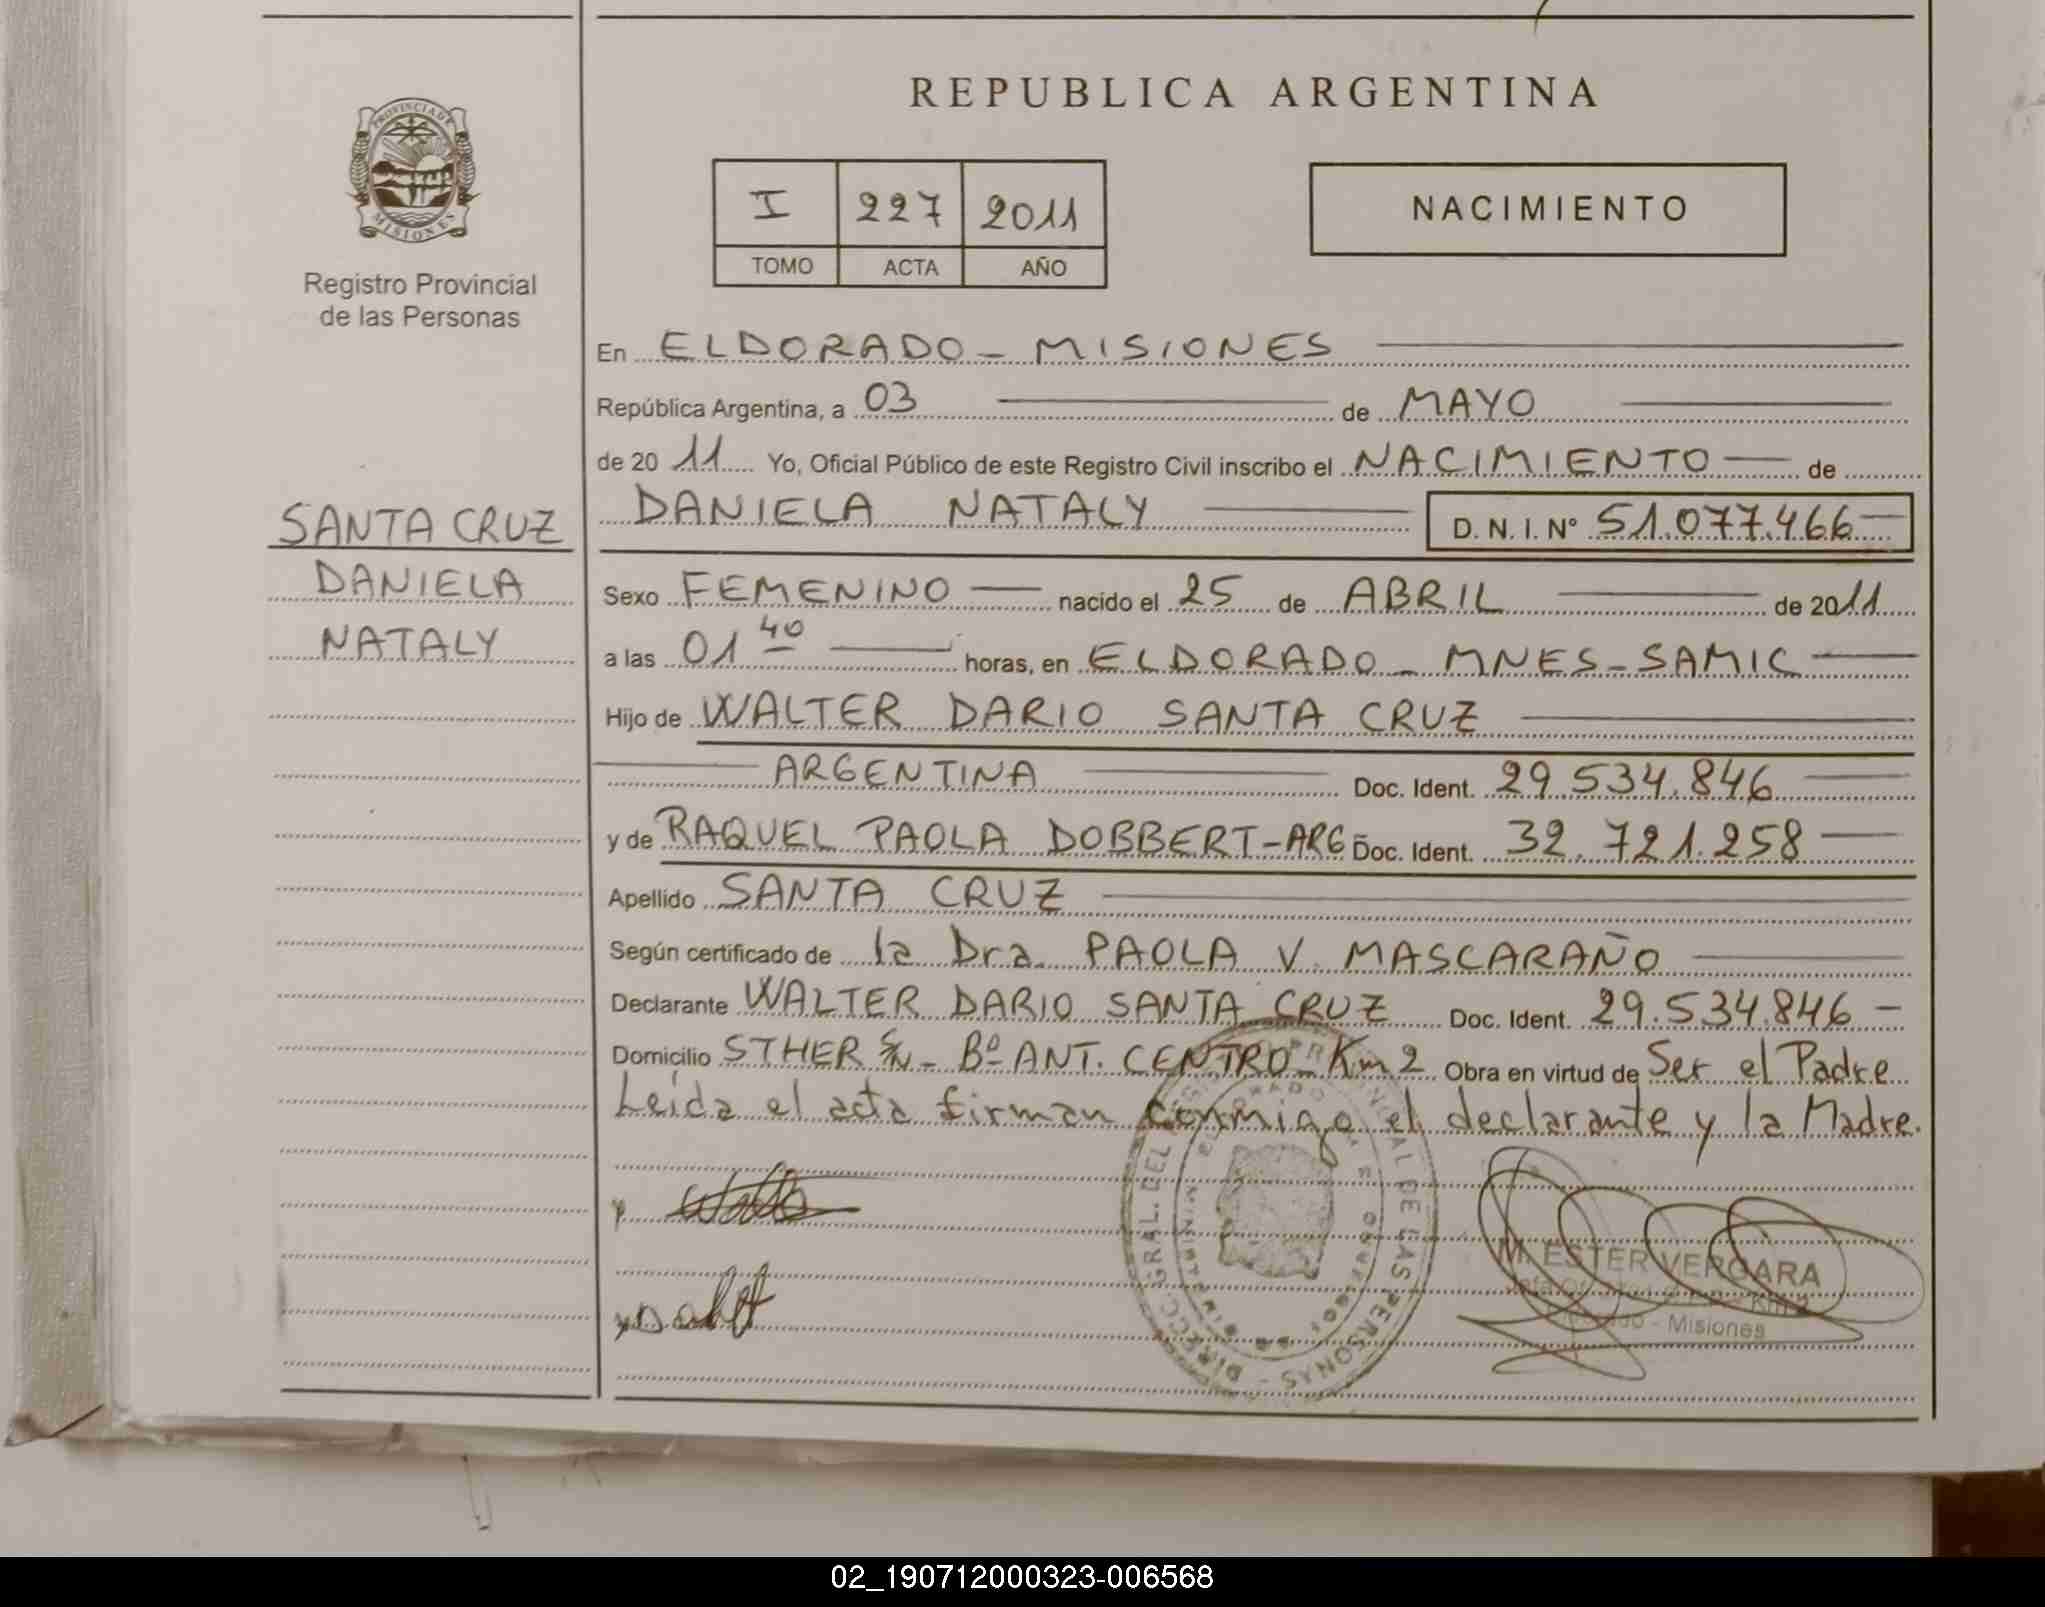 REPUBLICA ARGENTINA
PROVINCIA DE
MISIONES
Registro Provincial
de las Personas
I 227 2011
TOMO ACTA AÑO
NACIMIENTO
En ELDORADO - MISIONES
República Argentina, a 03 de MAYO
de 2011 Yo, Oficial Público de este Registro Civil inscribo el NACIMIENTO de
SANTA CRUZ
DANIELA
NATALY
DANIELA NATALY D. N. I. Nº 51.077.466
Sexo FEMENINO nacido el 25 de ABRIL de 2011
a las 01 40 horas, en ELDORADO - MNES - SAMIC
Hijo de WALTER DARIO SANTA CRUZ
ARGENTINA Doc. Ident. 29.534.846
y de RAQUEL PAOLA DOBBERT - ARG Doc. Ident. 32.721.258
Apellido SANTA CRUZ
Según certificado de la Dra. PAOLA V. MASCARAÑO
Declarante WALTER DARIO SANTA CRUZ Doc. Ident. 29.534.846 -
Domicilio STHER S/N - Bº ANT. CENTRO - Km 2 Obra en virtud de Ser el Padre
Leída el acta firman conmigo el declarante y la Madre.
DIRECC. GRAL. DEL PERSONAS
M. ESTER VERGARA
Km 2
- Misiones
02_190712000323-006568